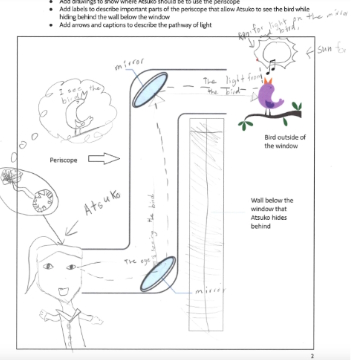 Add drawings to show where Atsuko should be to use the periscope
Add labels to describe important parts of the periscope that allow Atsuko to see the bird while
hiding behind the wall below the window
Add arrows and captions to describe the pathway of light
for light on the
bird.
sun
mirror
I see the
bird
The light from
the bird
Bird outside of
the window
Periscope
Atsuko
Wall below the
window that
Atsuko hides
behind
the bird
The eye
mirror
3